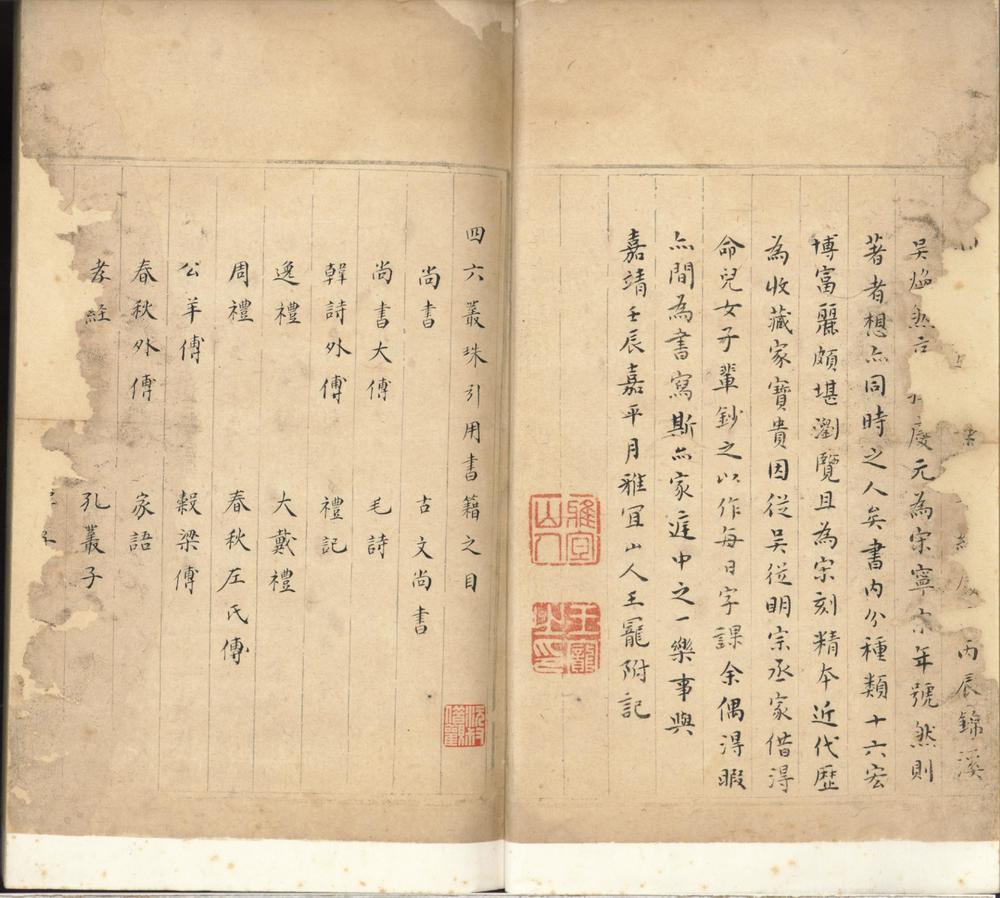 丙辰錦溪
吳煥然言 慶元為宋寧宗年號然則
著者想亦同時之人矣書內分種類十六宏
博富麗頗堪瀏覽且為宋刻精本近代歷
為收藏家寶貴因從吴從明宗丞家借得
命兒女子輩鈔之以作每日字課余偶得暇
亦間為書寫斯亦家庭中之一樂事與
嘉靖壬辰嘉平月雅宜山人王寵附記
雅宜山人
王寵
四六叢珠引用書籍之目
尚書 古文尚書
尚書大傅 毛詩
韓詩外傅 禮記
逸禮 大戴禮
周禮 春秋左氏傅
公羊傅 榖梁傅
春秋外傅 家語
孝經 孔叢子